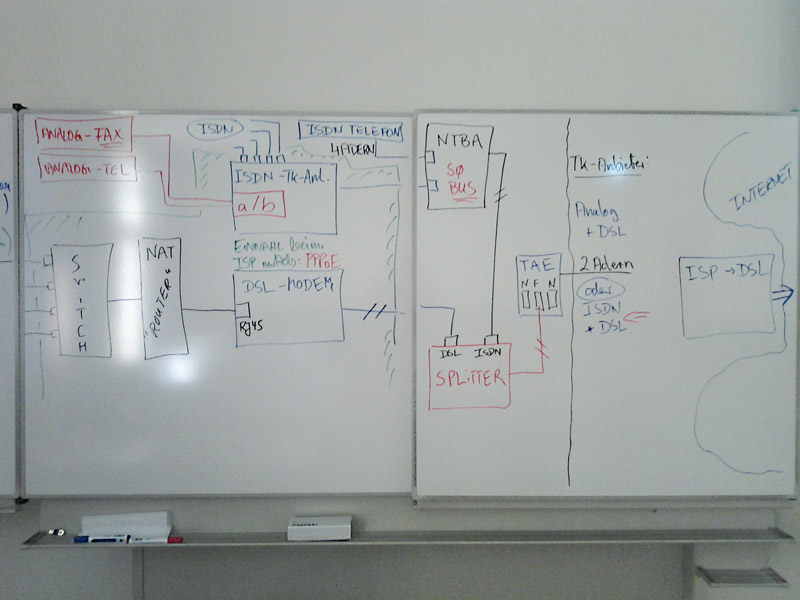 ANALOG-FAX
ANALOG-TEL
ISDN
ISDN TELEFON
4 ADERN
ISDN-TK-Anl.
a/b
SWITCH
NAT
"ROUTER"
EINWAHL beim
PPPoE
DSL-MODEM
RJ45
NTBA
SØ
BUS
TAE
N F N
DSL ISDN
SPLITTER
Tk-Anbieter:
Analog
+ DSL
2 Adern
oder
ISDN
+ DSL
ISP → DSL
INTERNET